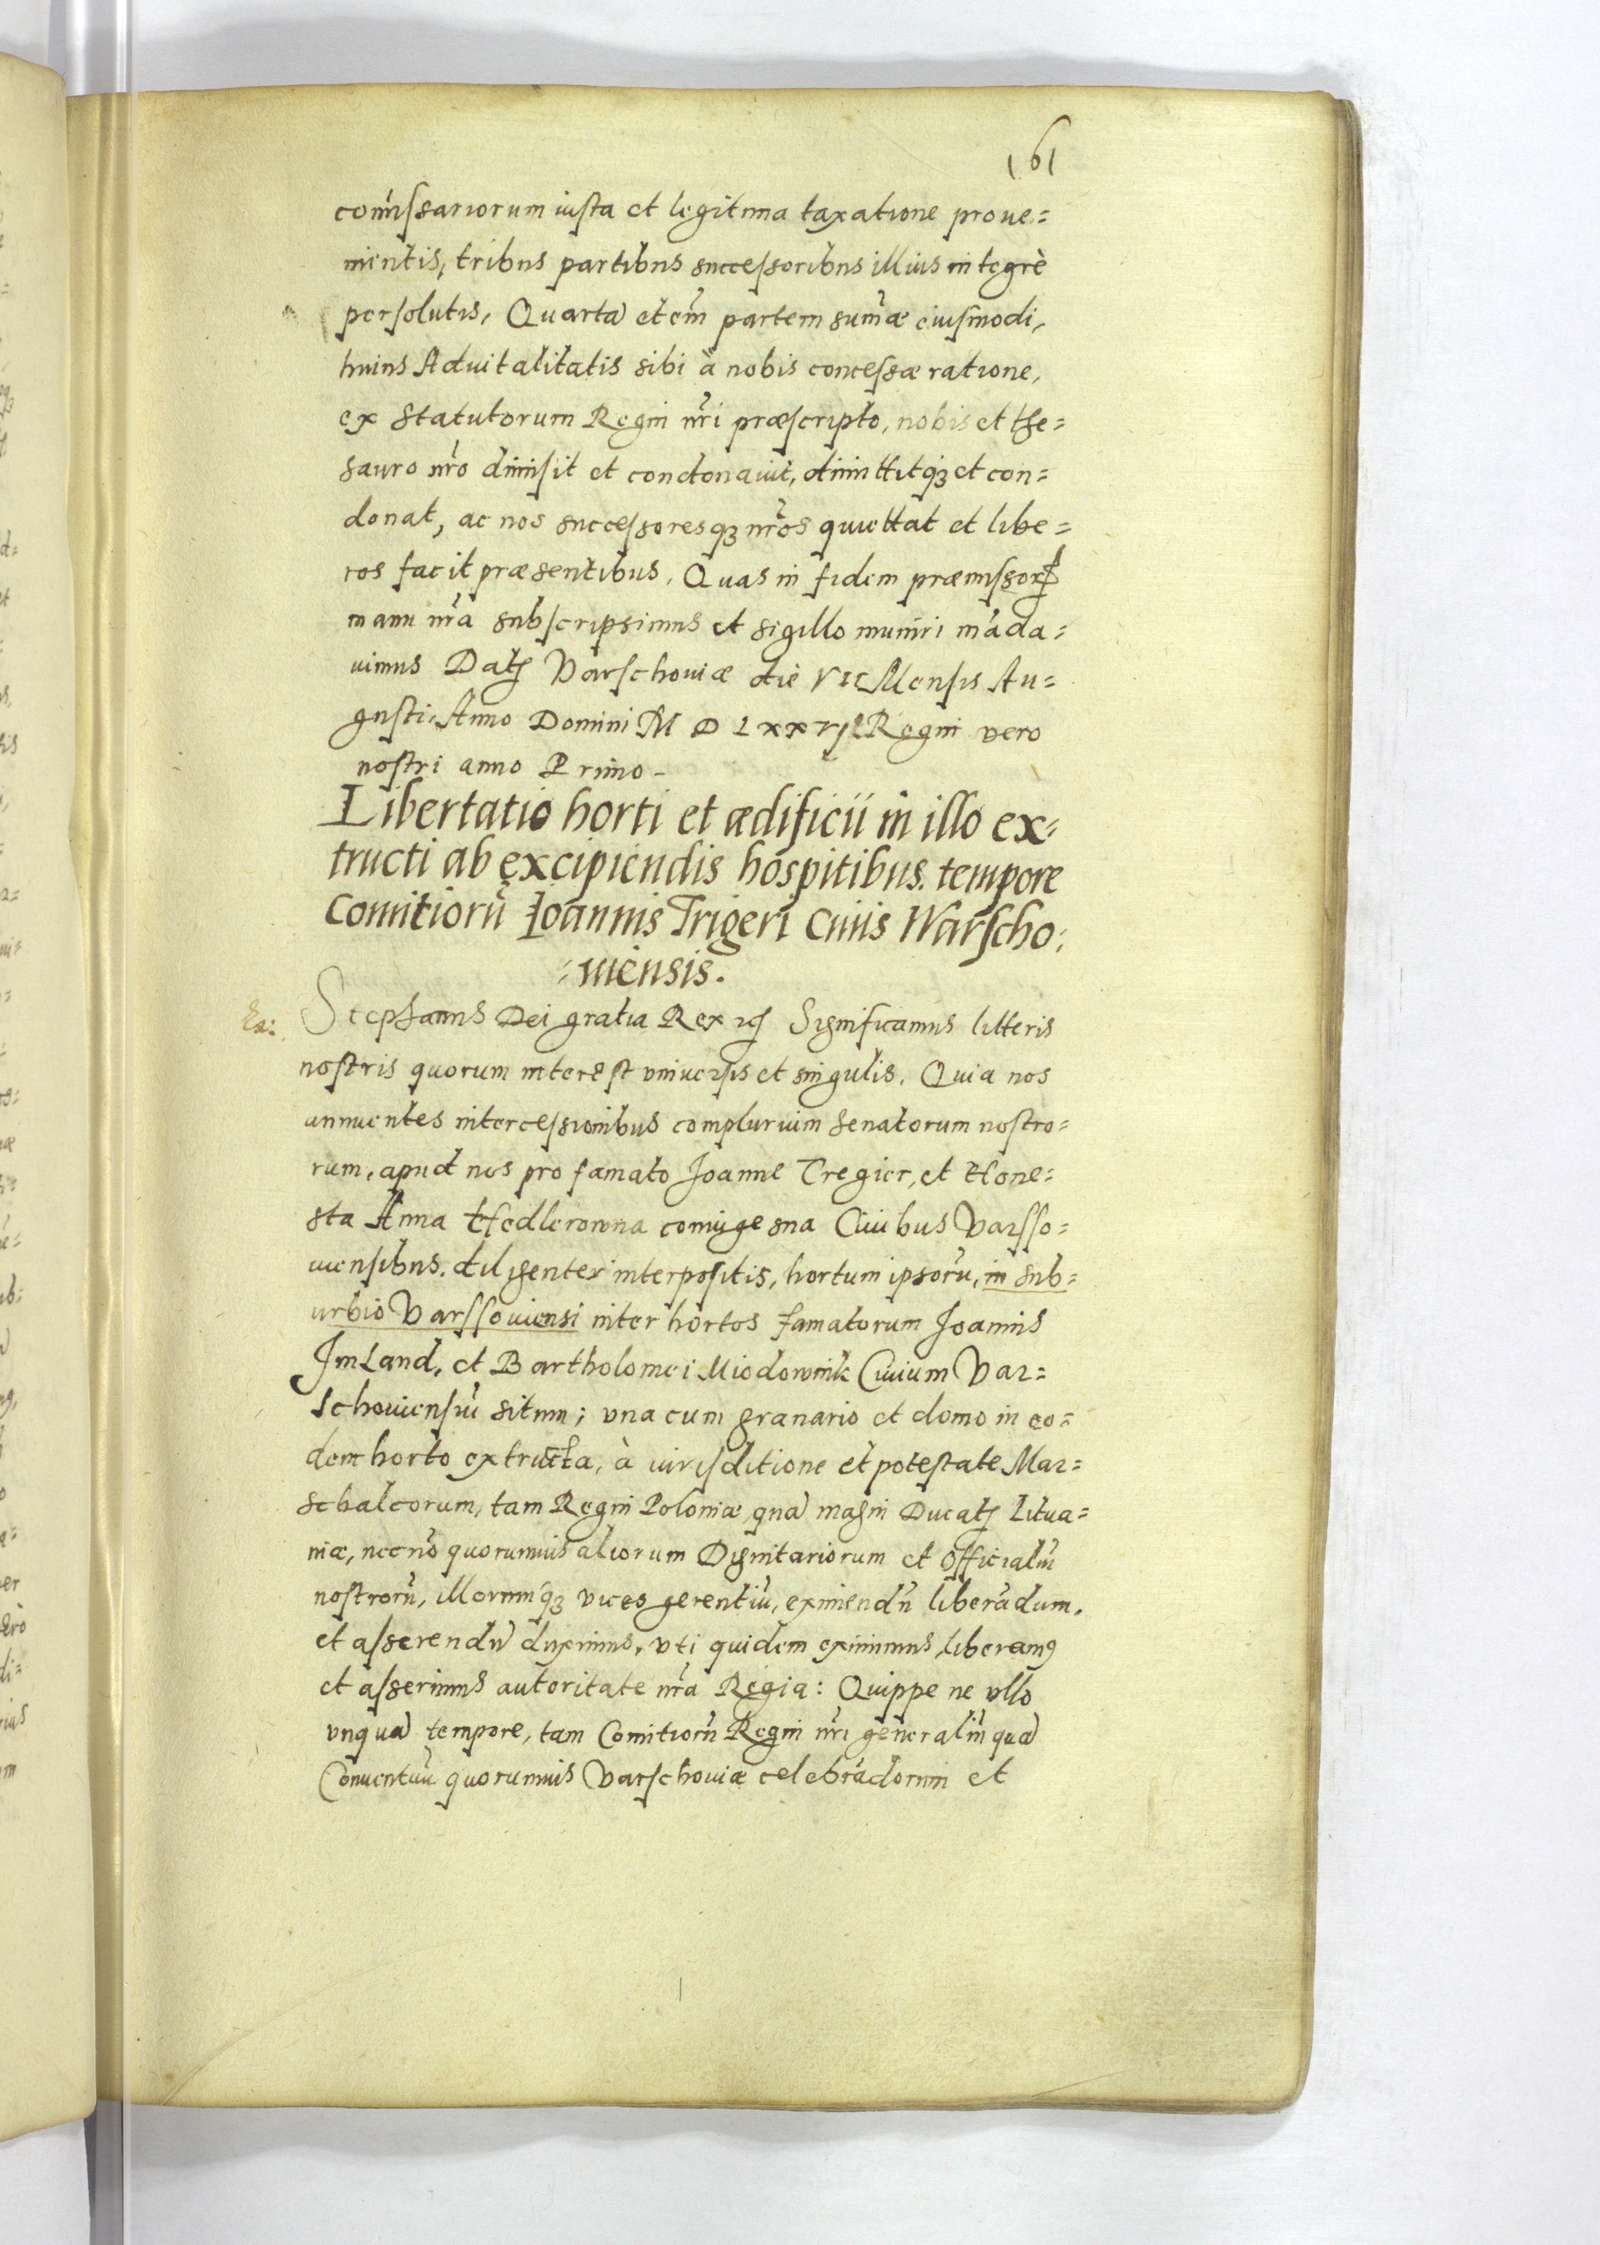 161
com̃issariorum iusta et legitima taxatione proue=
nientis, tribus partibus successoribus illius integrè
persolutis, Quartã etem̃ partem sum̃æ eiusmodi,
huius Aduitalitatis sibi à nobis concessæ ratione,
ex Statutorum Regni nr̃i præscripto, nobis et the=
sauro nr̃o dimisit et condonauit, dimittitq₃ et con=
donat, ac nos successoresq₃ nr̃os quiettat et libe=
ros facit præsentibus. Quas in fidem præmissorꝝ
manu nr̃a subscripsimus et sigillo muniri mãda=
uimus Datꝭ Varschouiæ die VII Mensis Au=
gusti, Anno Domini M D LXXVI Regni vero
nostri anno Primo
Libertatio horti et ædificii in illo ex=
tructi ab excipiendis hospitibus tempore
Comitiorũ Ioannis Trigeri Ciuis Warscho:
=uiensis.
Ex:
Stephanus Dei gratia Rex ꝛcꝭ Significamus litteris
nostris quorum interest vniuersis et singulis. Quia nos
annuentes intercessionibus complurium Senatorum nostro=
rum, apud nos pro famato Joanne Tregier, et Hone=
sta Anna Hedlerowna coniuge sua Ciuibus Varsso=
uiensibus, diligenter interpositis, hortum ipsorũ, in sub=
urbio Varssouiensi inter hortos famatorum Joannis
JmLand, et Bartholomei Miodownik Ciuium Var=
schouiensiũ situm; vna cum granario et domo in eo=
dem horto extructa, à iurisditione et potestate Mar=
schalcorum, tam Regni Poloniæ quã magni Ducatꝭ Litua=
niæ, necnõ quorumuis aliorum Dignitariorum et Officialiũ
nostrorũ, illorumq́₃ vices gerentiũ, eximendũ liberãdum,
et asserendũ duximus, vti quidem eximimus, liberamꝰ
et asserimus autoritate nr̃a Regia: Quippe ne vllo
vnquã tempore, tam Comitiorũ Regni nr̃i generaliũ quã
Conuentuũ quorumuis Varschouiæ celebrãdorum et